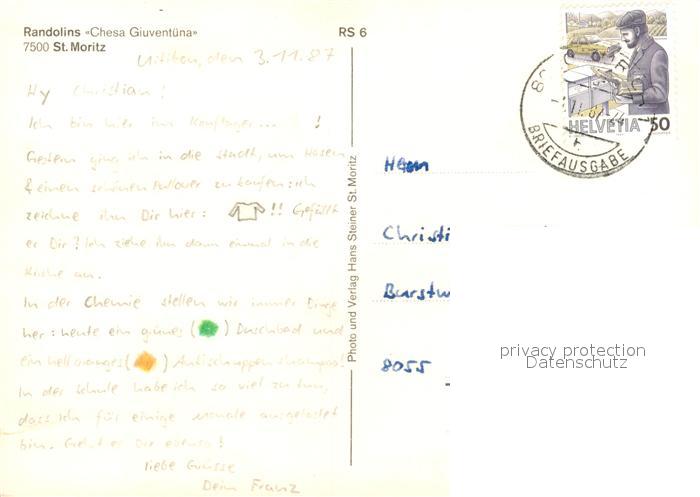 Randolins «Chesa Giuventüna»
7500 St. Moritz
RS 6
Uitikon, den 3.11.87
Hy Christian!
Ich bin hier im Konflager.... !
Gestern ging ich in die Stadt, um Hosen
& einen schönen Pullover zu kaufen: ich
zeichne ihn Dir hier: !! Gefällt
er Dir? Ich ziehe ihn dann einmal in die
an.
In der Chemie stellen wir immer Dinge
her: heute ein grünes ( ) Duschbad und
ein helloranges ( ) Antischuppenshampoo.
In der Schule habe ich so viel zu tun,
dass ich für einige Monate ausgelastet
bin. Geht es Dir ebenso?
liebe Grüsse
Dein Franz
Photo und Verlag Hans Steiner St. Moritz
HELVETIA 50
BRIEFAUSGABE
Herrn
Christi
Burstw
8055
privacy protection
Datenschutz